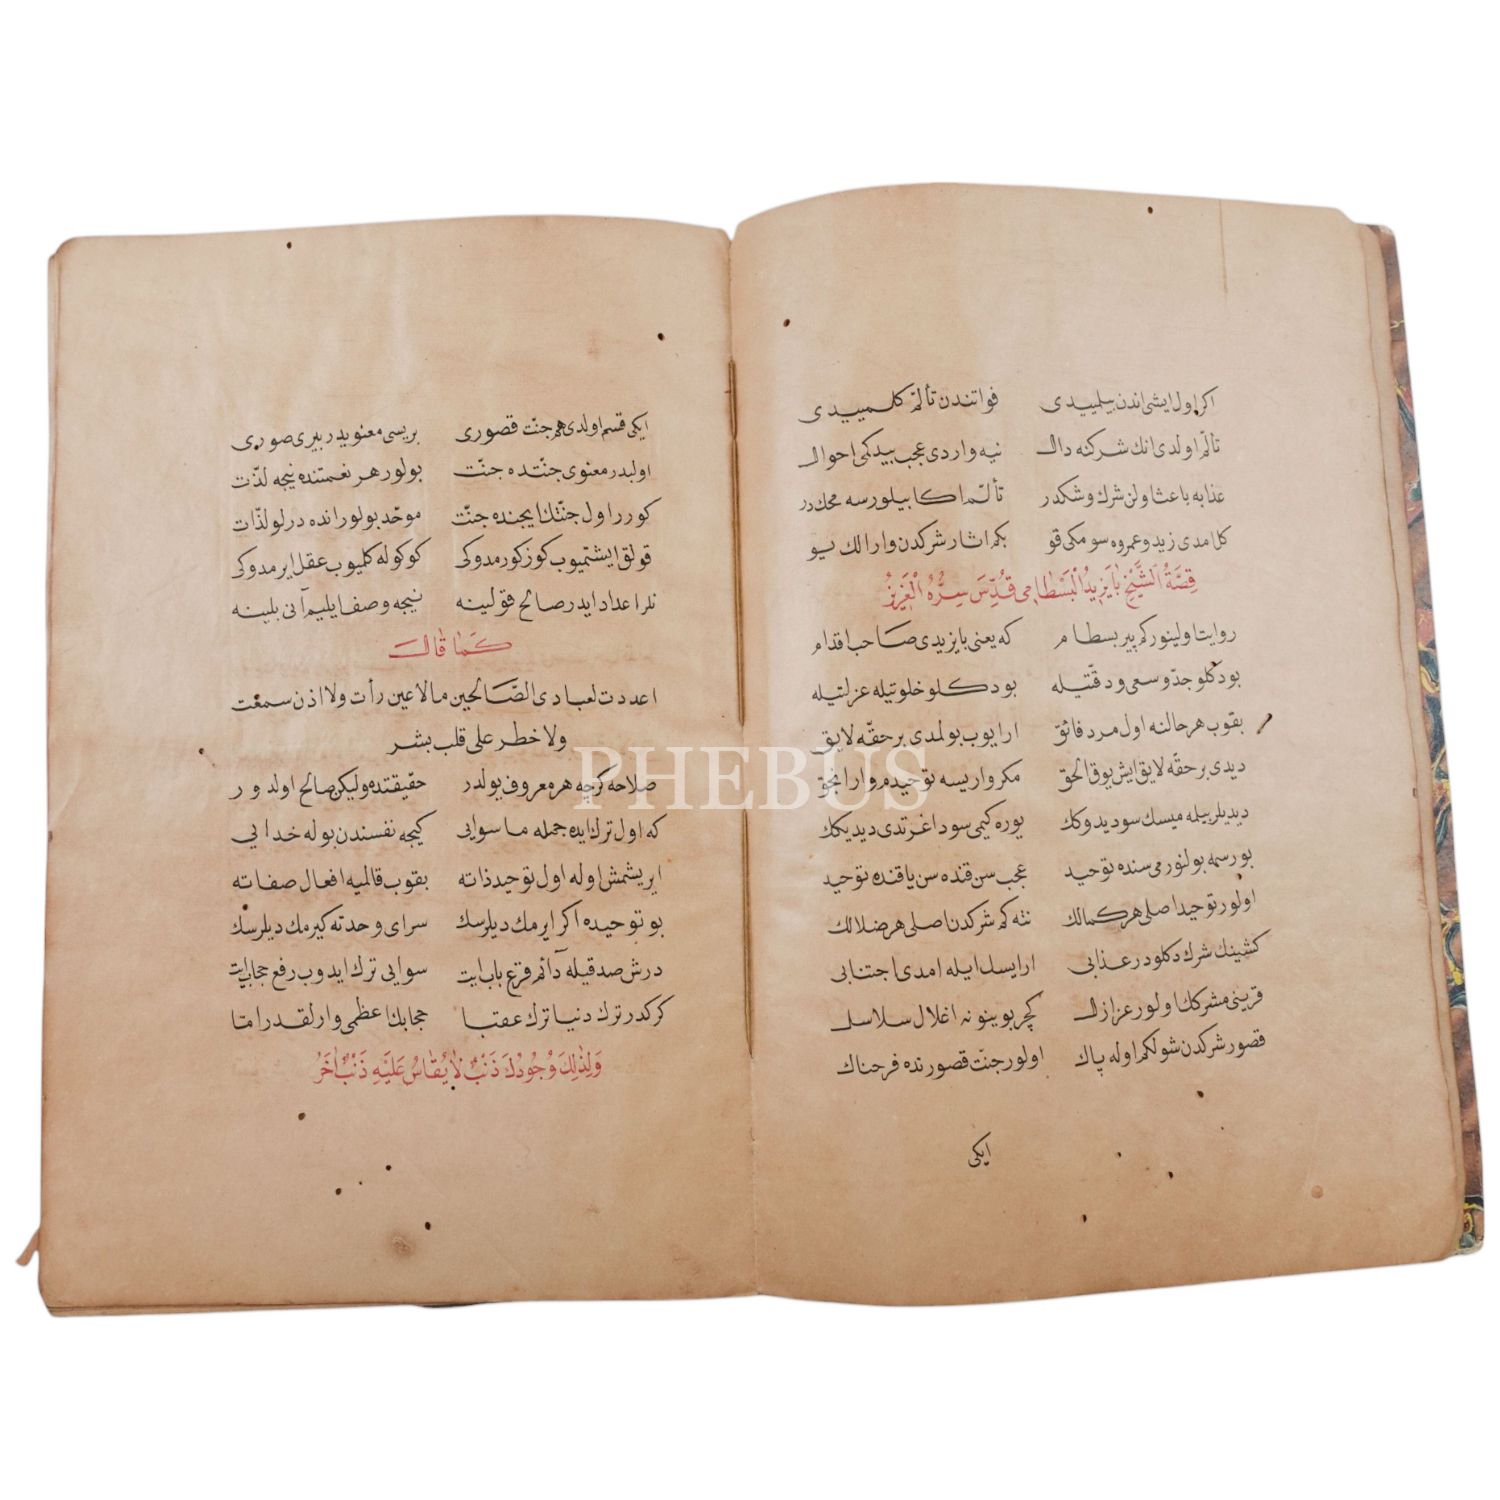 اكر اول ايشى اندن بيلميدى فواتندن تألّم كلميدى
تألّم اولدى انك شركنه دال نيه واردى عجب بيدكمى احوال
عذابه باعث اولن شرك و شكدر تألّم اكا بيلورسه محكدر
كلامدى زيد و عمروه سومكى قو بكم اثار شركدن وار الك يو
قِصَّةُ الشَّيْخِ بَايَزِيدُ الْبَسْطَامِى قُدِّسَ سِرُّهُ الْعَزِيزُ
روايت اولينور كم پير بسطام كه يعنى بايزيدى صاحب اقدام
بو دكلو جدّ و سعى و دقّتيله بو دكلو خلوتيله عزلتيله
بقوب هر حالنه اول مرد فائق ارايوب بولمدى بر حقّه لايق
ديدى بر حقّه لايق ايش يوق الحق مكر واريسه توحيدم وار انجق
ديديلر بيله ميسك سوديدوكك يوره كيمى سود اغرتدى ديديكك
بورسمه بولنورمى سنده توحيد عجب سن قنده سن يا قنده توحيد
اولور توحيد اصلى هر كمالك نته كم شركدن اصلى هر ضلالك
كشينك شرك دكلودر عذابى ارايسك ايله امدى اجتنابى
قرينى مشركك اولور عزازل كچر بوينونه اغلال سلاسل
قصور شركدن شولكم اوله پاك اولور جنّت قصورنده فرحناك
ايكى
ايكى قسم اولدى هم جنّت قصورى بريسى معنويدر بيرى صورى
اولبدر معنوى جنّتده جنّت بولور هر نعمتنده نيجه لذّت
كورر اول جنّتك ايچنده جنّت موحّد بولور انده درلو لذّات
قولق ايشتميوب كوز كورمدوكى كوكوله كلميوب عقل ايرمدوكى
نلر اعداد ايدر صالح قولينه نيجه وصف ايليم آنى بلينه
كَمَا قَالَ
اعددت لعبادى الصّالحين مالا عين رأت ولا اذن سمعت
ولا خطر على قلب بشر
صلاحه كرچه هر معروف يولدر حقيقتده وليكن صالح اولدور
كه اول ترك ايده جمله ماسوايى كيجه نفسندن بوله خدايى
ايريشمش اوله اول توحيد ذاته بقوب قالميه افعال صفاته
بو توحيده اكر ايرمك ديلرسك سراى وحدته كيرمك ديلرسك
درش صدقيله دآئم قرع باب ايت سوايى ترك ايدوب رفع حجاب ايت
كركدر ترك دنيا ترك عقبا حجابك اعظمى وارلقدر امّا
وَلِذٰلِكَ وُجُودُكَ ذَنْبٌ لَا يُقَاسُ عَلَيْهِ ذَنْبٌ اٰخَرُ
PHEBUS